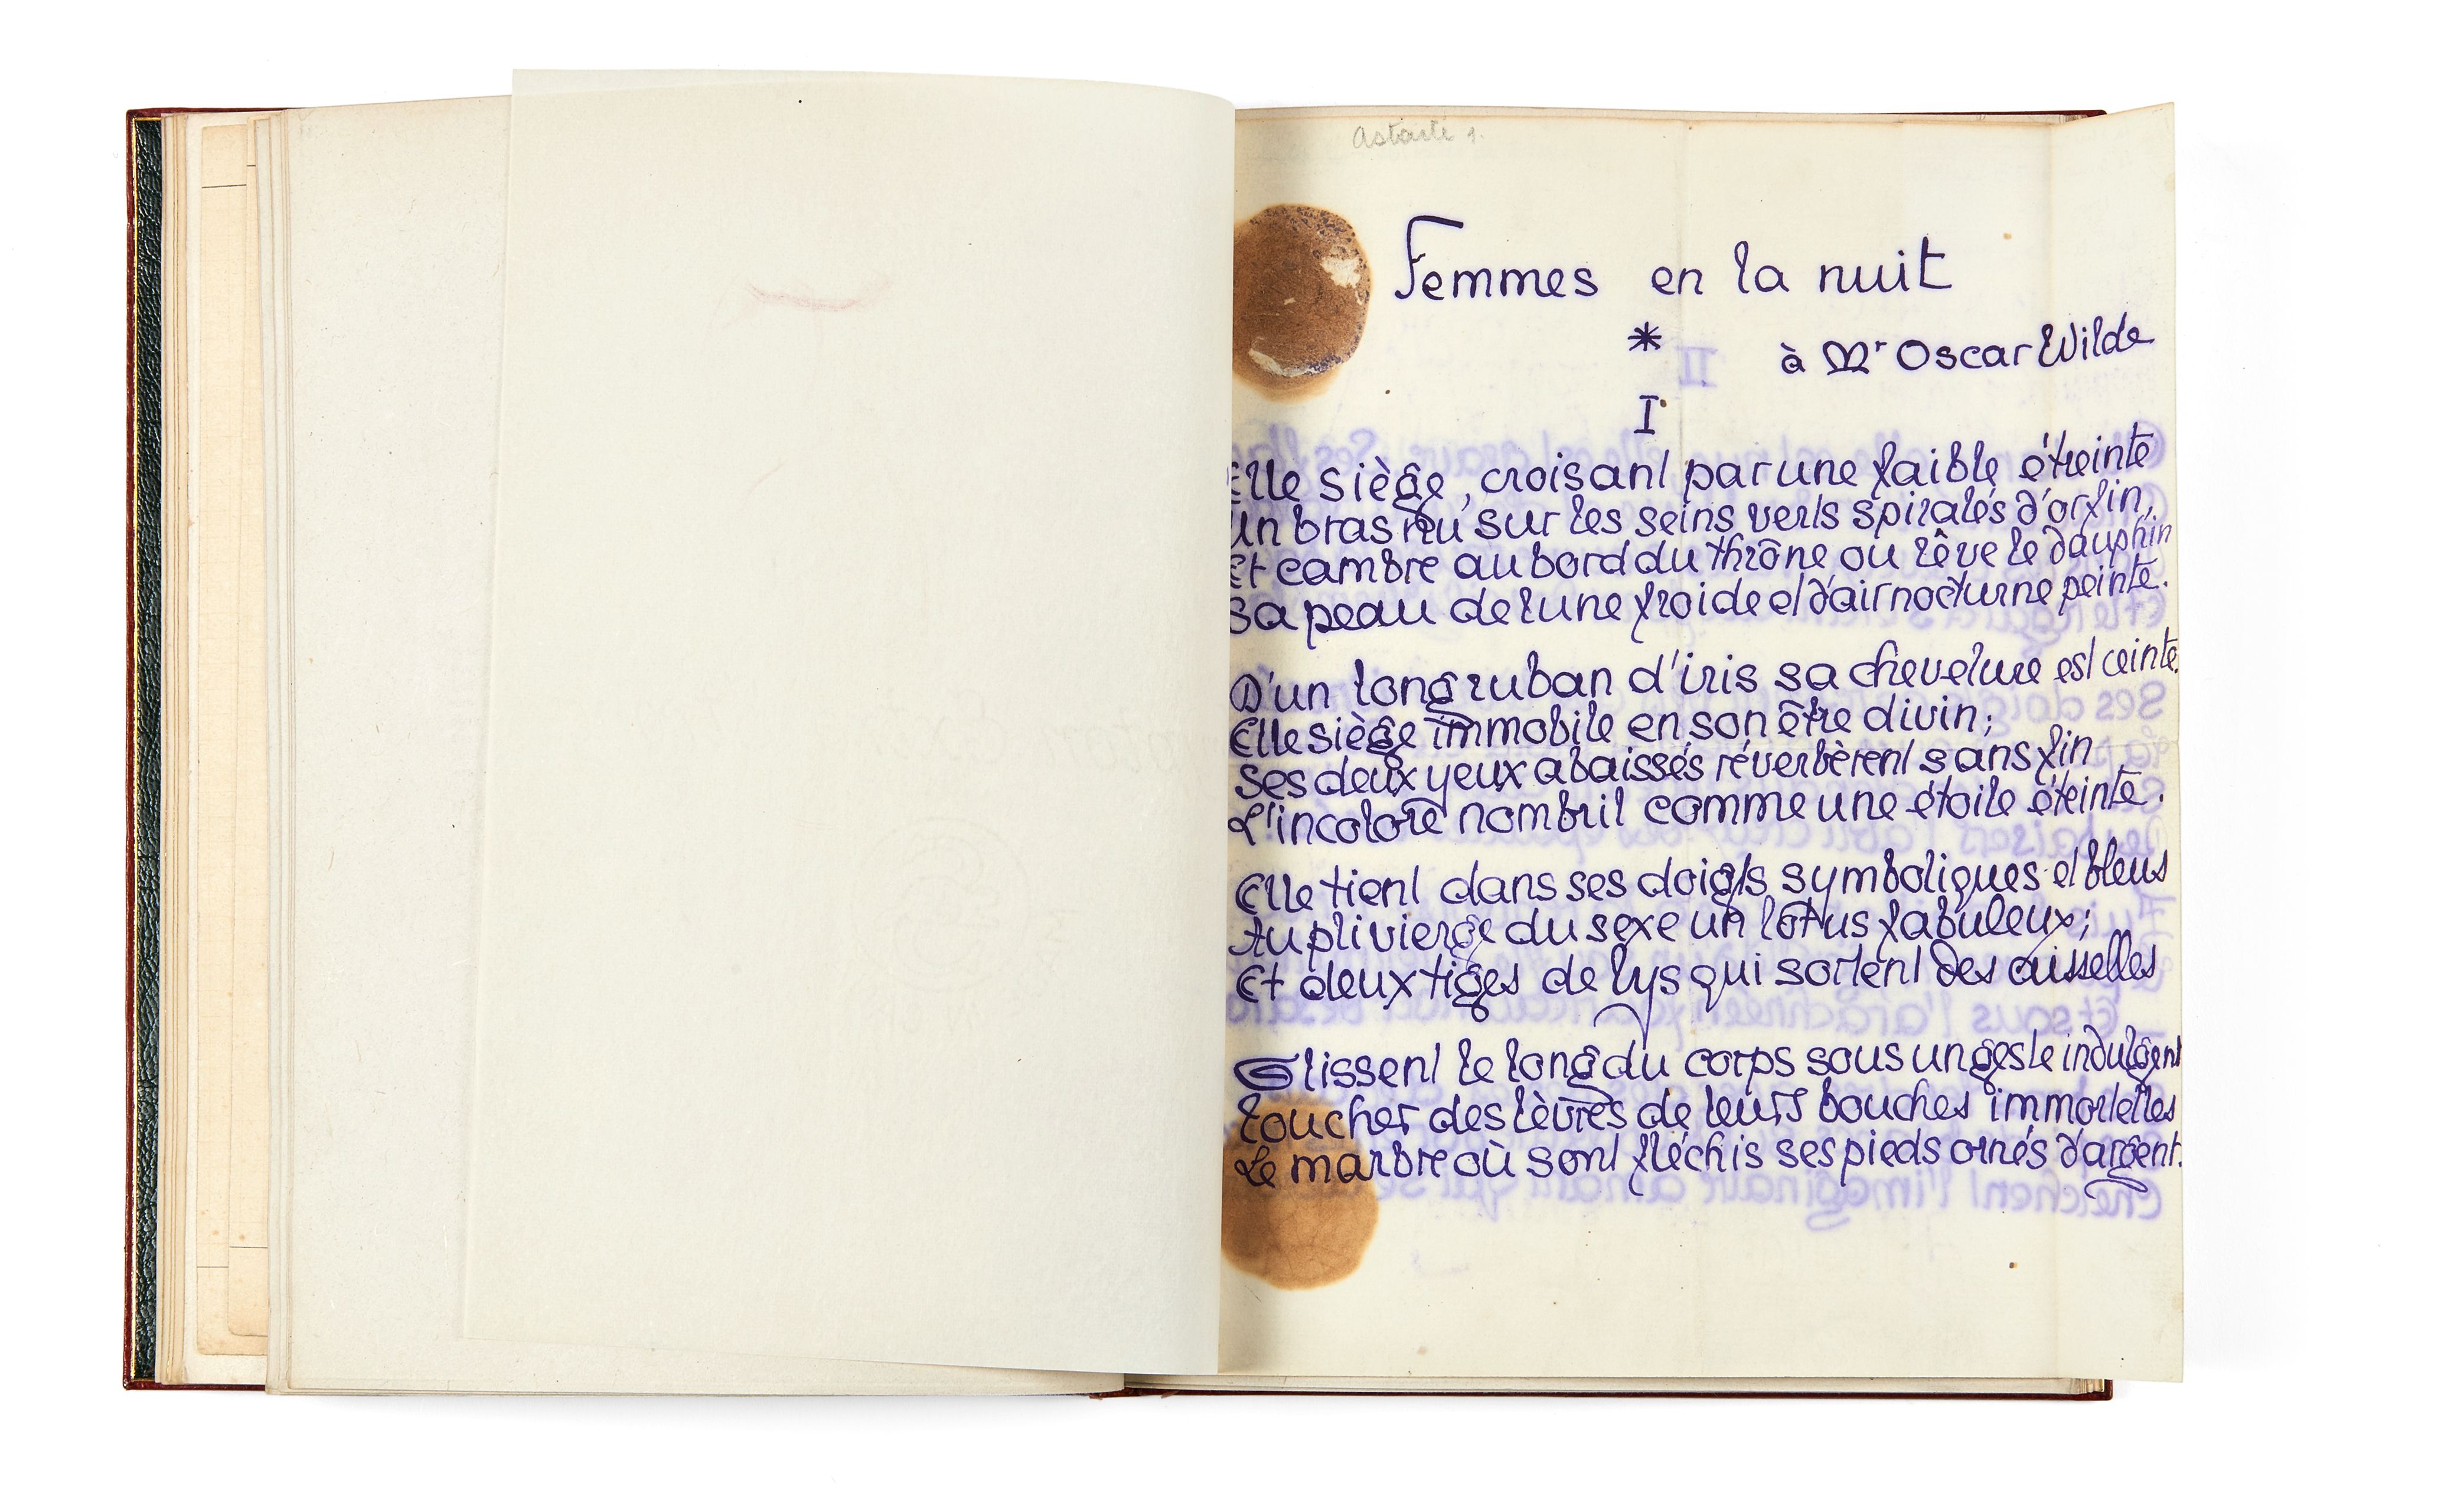 Astarte 1.
Femmes en la nuit
*
à Mr Oscar Wilde
I
Elle siège, croisant par une faible étreinte
Un bras nu sur les seins verts spiralés d'or fin,
Et cambre au bord du thrône où rêve le dauphin
Sa peau de lune froide et d'air nocturne peinte.
D'un long ruban d'iris sa chevelure est ceinte.
Elle siège immobile en son être divin;
Ses deux yeux abaissés réverbèrent sans fin
L'incolore nombril comme une étoile éteinte.
Elle tient dans ses doigts symboliques et bleus
Au pli vierge du sexe un lotus fabuleux;
Et deux tiges de lys qui sortent des aisselles
Glissent le long du corps sous un geste indulgent
Toucher des lèvres de leurs bouches immortelles
Le marbre où sont fléchis ses pieds ornés d'argent.